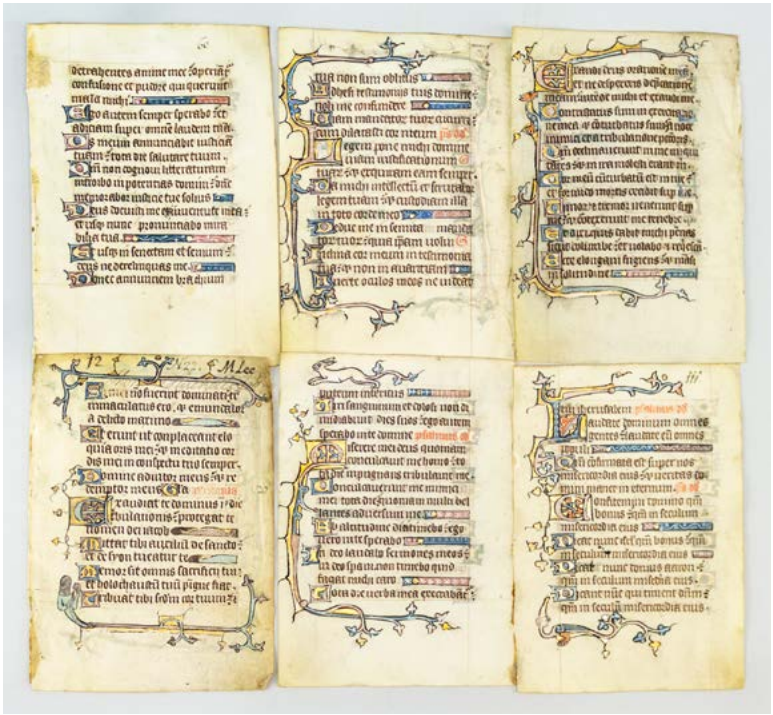 detrahentes anime mee
confusione et pudore qui querunt
mala michi
go autem semper sperabo et
adiciam super omnem laudem tuam
s meum annunciabit iusticiam
tuam tota die salutare tuum
m non cognoui litteraturam
introibo in potentias domini
memorabor iusticie tue solius
eus docuisti me ex iuuentute mea
et usq; nunc pronunciabo mira
bilia tua
t usq; in senectam et senium
deus ne derelinquas me
onec annunciem brachium
tua non sum oblitus
dhesi testimoniis tuis domine
noli me confundere
iam mandatorum tuorum cucurri
cum dilatasti cor meum
egem pone michi domine
uiam iustificationum
tuarum et exquiram eam semper
a michi intellectum et scrutabor
legem tuam et custodiam illam
in toto corde meo
educ me in semita manda
torum tuorum quia ipsam uolui
nclina cor meum in testimonia
tua et non in auariciam
uerte oculos meos ne uideat
xaudi deus orationem meam
et ne despexeris deprecationem
meam intende michi et exaudi me
ontristatus sum in exercitatio
ne mea et conturbatus sum a uoce
inimici et a tribulatione peccatoris
m declinauerunt in me iniqui
tates et in ira molesti erant
or meum conturbatum est in me
et formido mortis cecidit super me
imor et tremor uenerunt super
me et contexerunt me tenebre
t dixi quis dabit michi pennas
sicut columbe et uolabo et requiescam
cce elongaui fugiens et mansi
in solitudine
12 M Lee
i mei non fuerint dominati
immaculatus ero et emundabor
a delicto maximo
t erunt ut complaceant elo
quia oris mei et meditatio cor
dis mei in conspectu tuo semper
omine adiutor meus et re
demptor meus
xaudiat te dominus in die
tribulationis protegat te
nomen dei iacob
ittat tibi auxilium de sancto
et de syon tueatur te
emor sit omnis sacrificii tui
et holocaustum tuum pingue fiat
ribuat tibi secundum cor tuum
puteum interitus
iri sanguinum et dolosi non di
midiabunt dies suos ego autem
sperabo in te domine
iserere mei deus quoniam
conculcauit me homo tota
die impugnans tribulauit me
onculcauerunt me inimici
mei tota die quoniam multi bel
lantes aduersum me
b altitudine diei timebo ego
uero in te sperabo
n deo laudabo sermones meos
in deo speraui non timebo quid
faciat michi caro
ota die uerba mea execrabantur
iii
tui iherusalem
audate dominum omnes
gentes laudate eum omnes
populi
m confirmata est super nos
misericordia eius et ueritas do
mini manet in eternum
onfitemini domino quoniam
bonus quoniam in seculum
misericordia eius
icat nunc israel quoniam bonus quoniam
in seculum misericordia eius
icat nunc domus aaron
quoniam in seculum misericordia eius
icant nunc qui timent dominum
quoniam in seculum misericordia eius